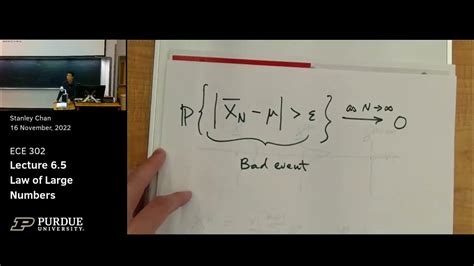 Stanley Chan
16 November, 2022
ECE 302
Lecture 6.5
Law of Large
Numbers
PURDUE
UNIVERSITY®
ℙ{ |X̄_N − μ| > ε } as N→∞ ⟶ 0
Bad event